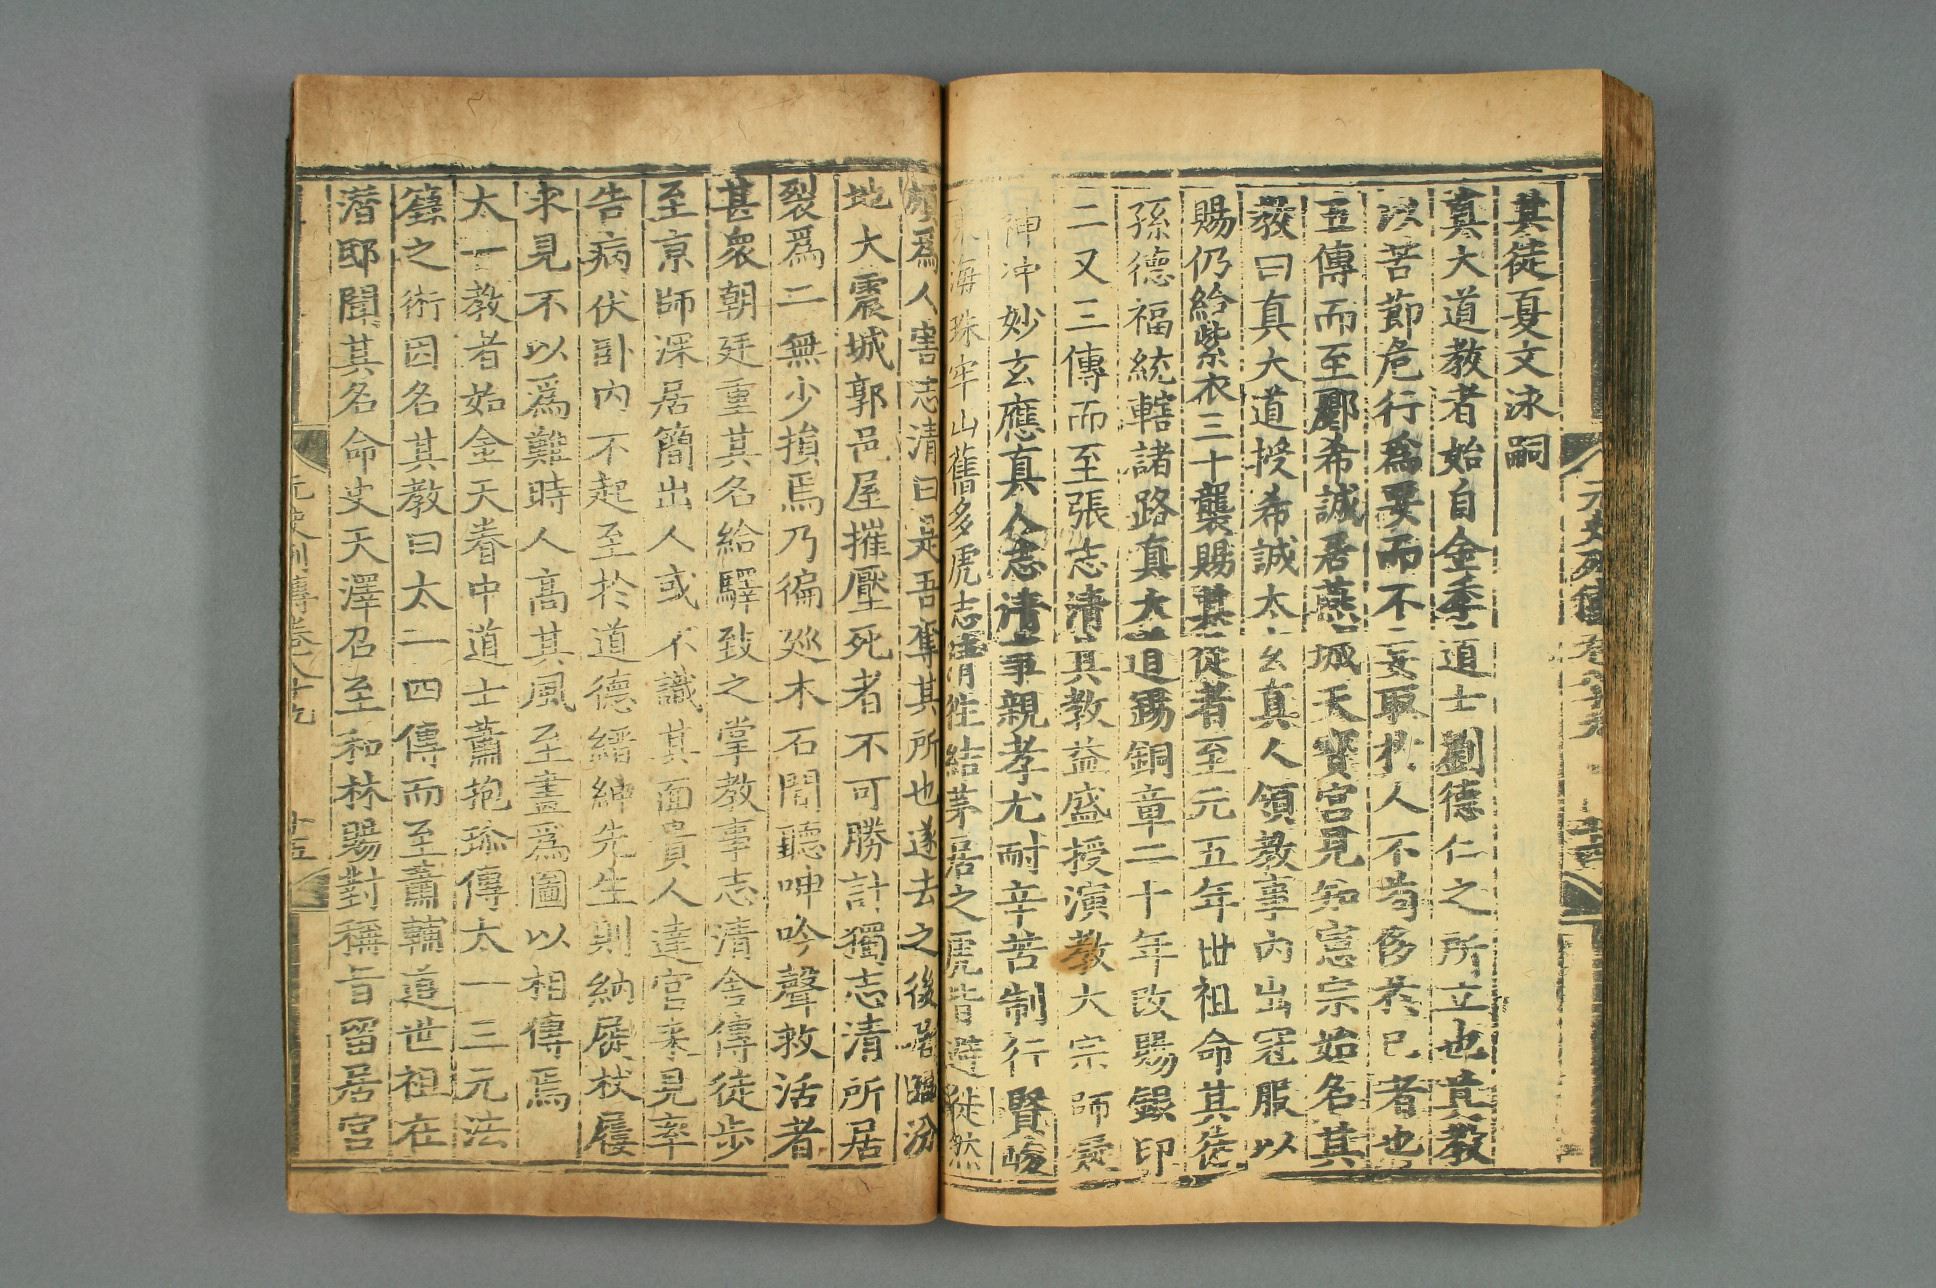 元史列傳卷八十九
十四
其徒夏文泳嗣
真大道教者始自金季道士劉德仁之所立也其教
以苦節危行爲要而不妄取於人不苟侈於己者也
五傳而至酈希誠居燕城天寳宫見知憲宗始名其
教曰真大道授希誠太玄真人領教事内出冠服以
賜仍給紫衣三十襲賜其從者至元五年世祖命其徒
孫德福統轄諸路真大道錫銅章二十年改賜銀印
二又三傳而至張志清其教益盛授演教大宗師凝
神冲妙玄應真人志清事親孝尤耐辛苦制行賢峻
東海珠牢山舊多虎志清徃結茅居之虎皆避徙然
頗爲人害志清曰是吾奪其所也遂去之後居臨汾
地大震城郭邑屋摧壓死者不可勝計獨志清所居
裂爲二無少損焉乃徧廵木石間聽呻吟聲救活者
甚衆朝廷重其名給驛致之掌教事志清舍傳徒步
至京師深居簡出人或不識其面貴人達官来見率
告病伏卧内不起至於道德縉紳先生則納屐杖屨
求見不以爲難時人高其風至畫爲圖以相傳焉
太一教者始金天眷中道士蕭抱珍傳太一三元法
籙之術因名其教曰太一四傳而至蕭輔道世祖在
潜邸聞其名命史天澤召至和林賜對稱旨留居宫
元史列傳卷八十九
十五